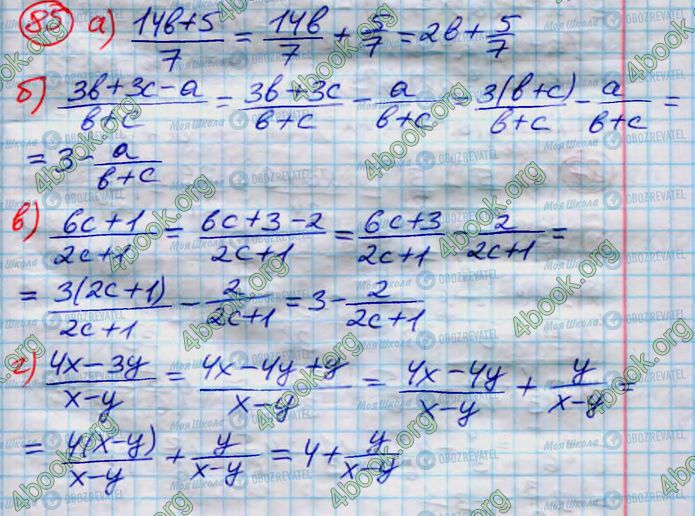 85 а) (14в+5)/7 = 14в/7 + 5/7 = 2в + 5/7
б) (3в+3с-а)/(в+с) = (3в+3с)/(в+с) - а/(в+с) = 3(в+с)/(в+с) - а/(в+с) =
= 3 - а/(в+с)
в) (6с+1)/(2с+1) = (6с+3-2)/(2с+1) = (6с+3)/(2с+1) - 2/(2с+1) =
= 3(2с+1)/(2с+1) - 2/(2с+1) = 3 - 2/(2с+1)
г) (4х-3у)/(х-у) = (4х-4у+у)/(х-у) = (4х-4у)/(х-у) + у/(х-у) =
= 4(х-у)/(х-у) + у/(х-у) = 4 + у/(х-у)
4book.org
Моя Школа
OBOZREVATEL